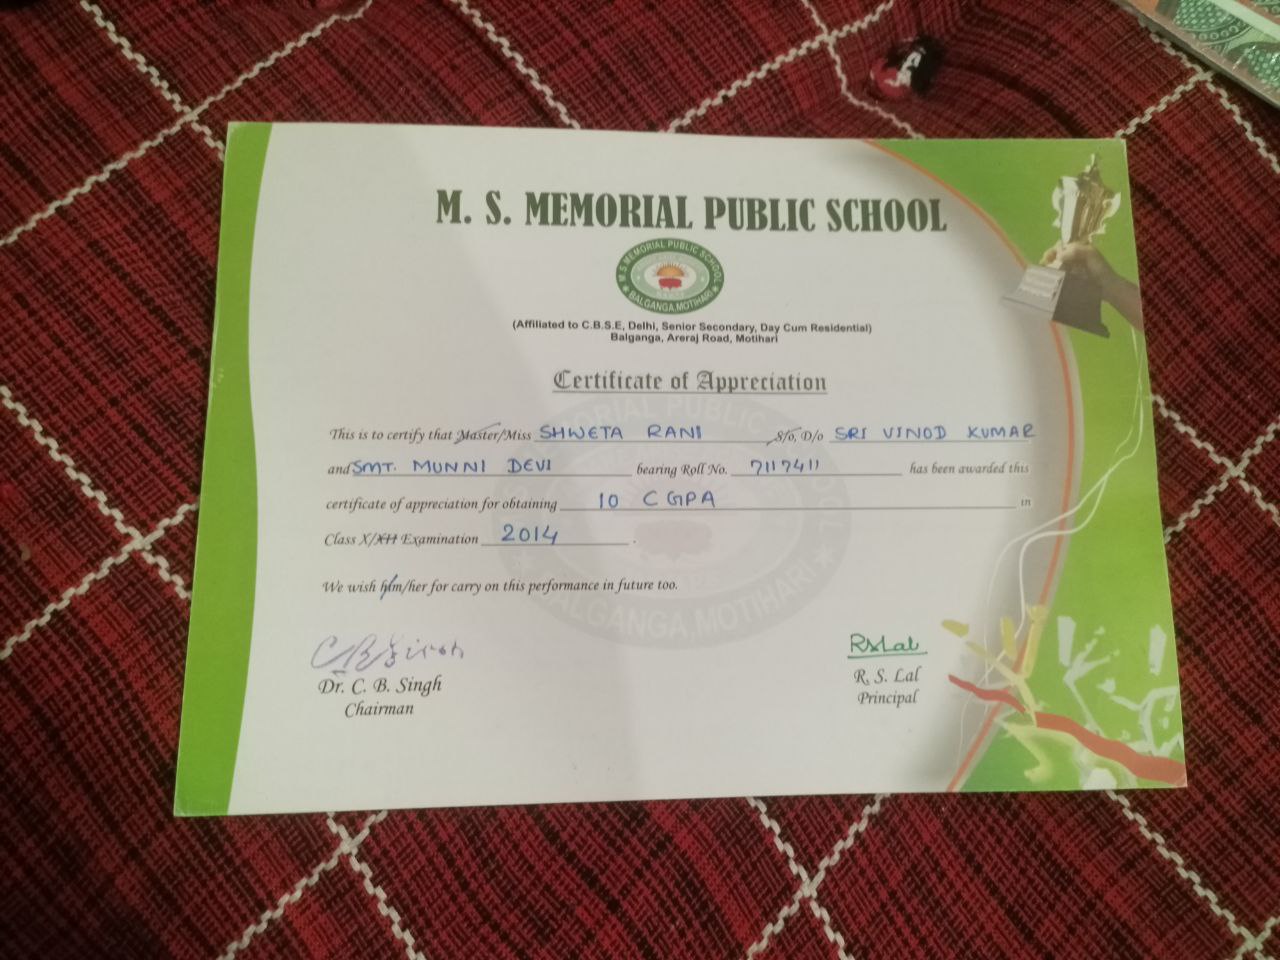 M. S. MEMORIAL PUBLIC SCHOOL
M.S MEMORIAL PUBLIC SCHOOL
BALGANGA, MOTIHARI
(Affiliated to C.B.S.E, Delhi, Senior Secondary, Day Cum Residential)
Balganga, Areraj Road, Motihari
Certificate of Appreciation
This is to certify that Master/Miss SHWETA RANI S/o, D/o SRI VINOD KUMAR
and SMT. MUNNI DEVI bearing Roll No. 7117411 has been awarded this
certificate of appreciation for obtaining 10 CGPA in
Class X/XII Examination 2014.
We wish him/her for carry on this performance in future too.
CBSingh
RSLal
Dr. C. B. Singh
R. S. Lal
Chairman
Principal